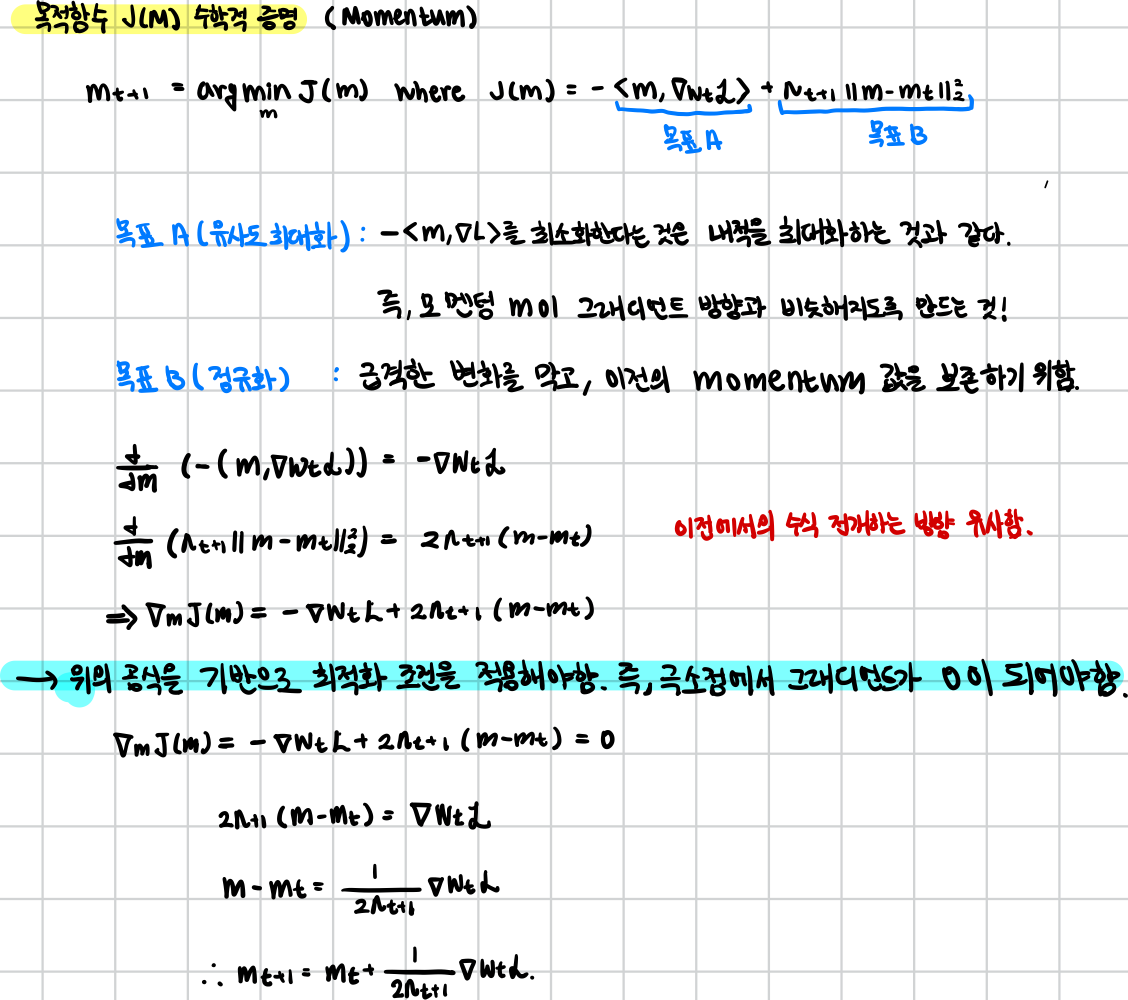 목적함수 J(M) 수학적 증명 (Momentum)
m_{t+1} = argmin_m J(m) where J(m) = -<m, ∇W_t L> + η_{t+1} ||m-m_t||_2^2
목표 A 목표 B
목표 A (유사도 최대화) : -<m,∇L>를 최소화한다는 것은 내적을 최대화하는 것과 같다.
즉, 모멘텀 m이 그래디언트 방향과 비슷해지도록 만드는 것!
목표 B (정규화) : 급격한 변화를 막고, 이전의 momentum 값을 보존하기 위함.
d/dm (-(m,∇W_t L)) = -∇W_t L
d/dm (η_{t+1} ||m-m_t||_2^2) = 2η_{t+1} (m-m_t) 이전에서의 수식 전개하는 방향 유사함.
⇒ ∇_m J(m) = -∇W_t L + 2η_{t+1} (m-m_t)
→ 위의 공식을 기반으로 최적화 조건을 적용해야함. 즉, 극소점에서 그래디언트가 0이 되어야함.
∇_m J(m) = -∇W_t L + 2η_{t+1} (m-m_t) = 0
2η_{t+1} (m-m_t) = ∇W_t L
m-m_t = 1/(2η_{t+1}) ∇W_t L
∴ m_{t+1} = m_t + 1/(2η_{t+1}) ∇W_t L.